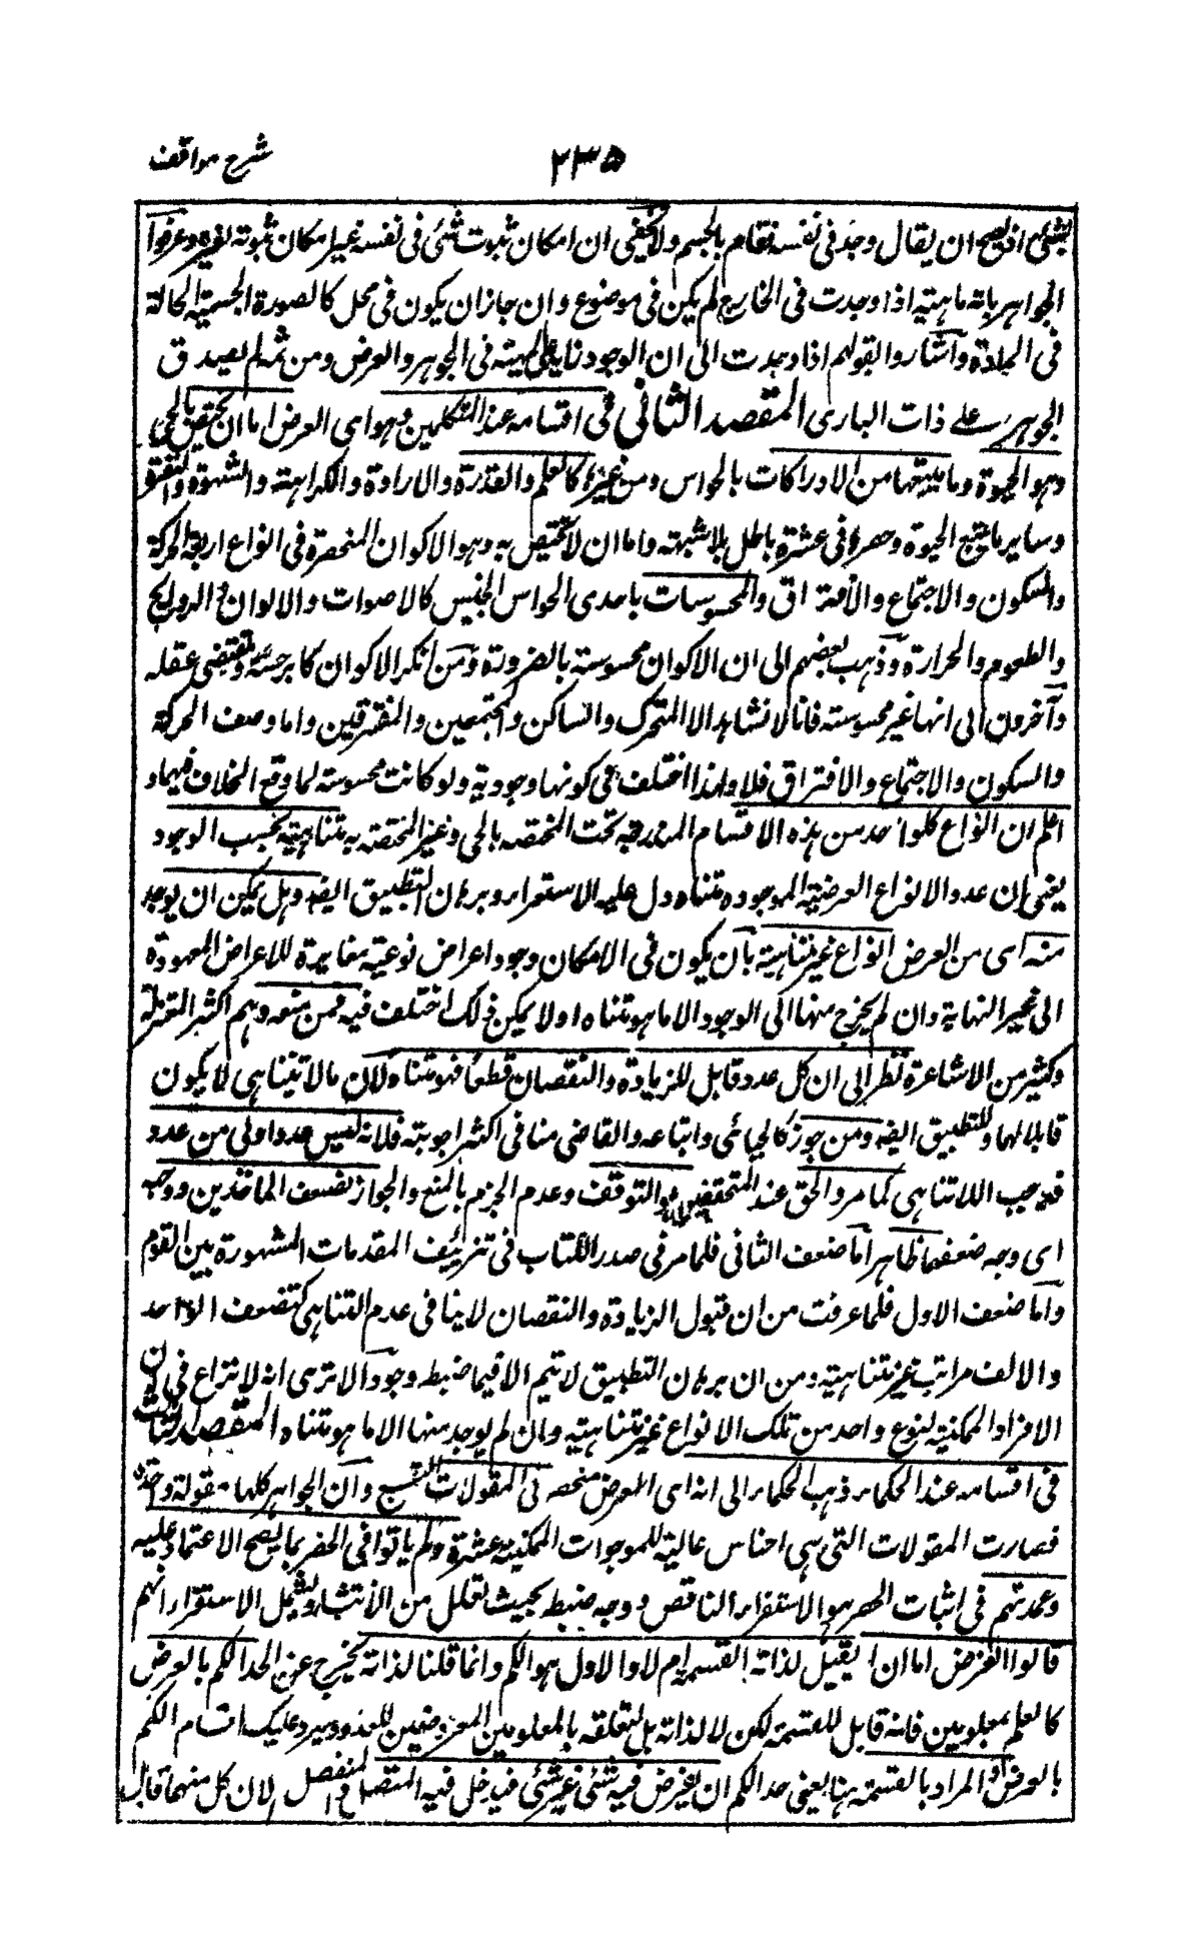 شرح مواقف
۲۳۵
بشئ اذ يصح ان يقال وجد فى نفسه فقام بالجسم ولا يخفى ان امكان ثبوت شئ فى نفسه غير امكان ثبوته لغيره وعرفوا
الجواهر بانه ماهية اذا وجدت فى الخارج لم يكن فى موضوع وان جاز ان يكون فى محل كالصورة الجسمية الحالة
فى المادة واشاروا بقولهم اذا وجدت الى ان الوجود زايد على المهية فى الجوهر والعرض ومن ثمه لم يصدق
الجوهر على ذات البارى المقصد الثانى فى اقسامه عند المتكلمين وهو اى العرض اما ان يختص بالحى
وهو الحيوة وما يتبعها من الادراكات بالحواس ومن غيرها كالعلم والقدرة والارادة والكراهة والشهوة والنفرة
وساير ما يتبع الحيوة وحصرها فى عشرة باطل بلا شبهة واما ان لا يختص به وهو الاكوان المنحصرة فى انواع اربعة الحركة
والسكون والاجتماع والافتراق والمحسوسات باحدى الحواس الخمس كالاصوات والالوان والروايح
والطعوم والحرارة وذهب بعضهم الى ان الاكوان محسوسة بالضرورة ومن انكر الاكوان كابر حسه ومقتضى عقله
وآخرون الى انها غير محسوسة فانا لا نشاهد الا المتحرك والساكن والمجتمعين والمفترقين واما وصف الحركة
والسكون والاجتماع والافتراق فلا ولهذا اختلف فى كونها وجودية ولو كانت محسوسة لما وقع الخلاف فيها و
اعلم ان انواع كل واحد من هذه الاقسام المندرجة تحت المختصه بالحى وغير المختصة به متناهية بحسب الوجود
يعنى ان عدد الانواع العرضية الموجوده متناه دل عليه الاستقراء وبرهان التطبيق ايضا وهل يمكن ان يوجد
منه اى من العرض انواع غير متناهية بان يكون فى الامكان وجود اعراض نوعية مغايرة للاعراض المعهودة
الى غير النهاية وان لم يخرج منها الى الوجود الا ما هو متناه او لا يمكن ذلك اختلف فيه فمن منعه وهم اكثر المعتزلة
وكثير من الاشاعرة نظر الى ان كل عدد قابل للزيادة والنقصان قطعا فهو متناه ولان ما لا يتناهى لا يكون
قابلا لهما وللتطبيق ايضا ومن جوز كالجبائى واتباعه والقاضى منا فى اكثر اجوبته فلانه ليس عدد اولى من عدد
فوجب اللاتناهى كما مر والحق عند المحققين هو التوقف وعدم الجزم بالمنع والجواز لضعف الماخذين ووجه
اى وجه ضعفهما ظاهر اما ضعف الثانى فلما مر فى صدر الكتاب فى تزييف المقدمات المشهورة بين القوم
واما ضعف الاول فلما عرفت من ان قبول الزيادة والنقصان لا ينافى عدم التناهى كتضعف الواحد
والالف مراتب غير متناهية ومن ان برهان التطبيق لا يتم الا فيما ضبطه وجود الا ترى انه لا نزاع فى ان
الافراد الممكنة لنوع واحد من تلك الانواع غير متناهية وان لم يوجد منها الا ما هو متناه المقصد الثالث
فى اقسامه عند الحكماء ذهب الحكماء الى انه اى العرض منحصر فى المقولات التسع وان الجواهر كلها مقولة واحدة
فصارت المقولات التى هى اجناس عالية للموجودات الممكنة عشرة ولم ياتوا فى الحصر بما يصح الاعتماد عليه
وعمدتهم فى اثبات الحصر هو الاستقراء الناقص ووجه ضبطه بحيث يقلل من الانتشار ويسهل الاستقراء انهم
قالوا العرض اما ان يقبل لذاته القسمة ام لا والاول هو الكم وانما قلنا لذاته يخرج عن الحد الكم بالعرض
كالعلم بمعلومين فانه قابل للقسمة لكن لا لذاته بل لتعلقه بالمعلومين المعروضين للعدد وسيرد عليك اقسام الكم
بالعرض والمراد بالقسمة هنا يعنى حد الكم ان يفرض فيه شئ غير شئ فيدخل فيه المتصل والمنفصل لان كل منهما قابل